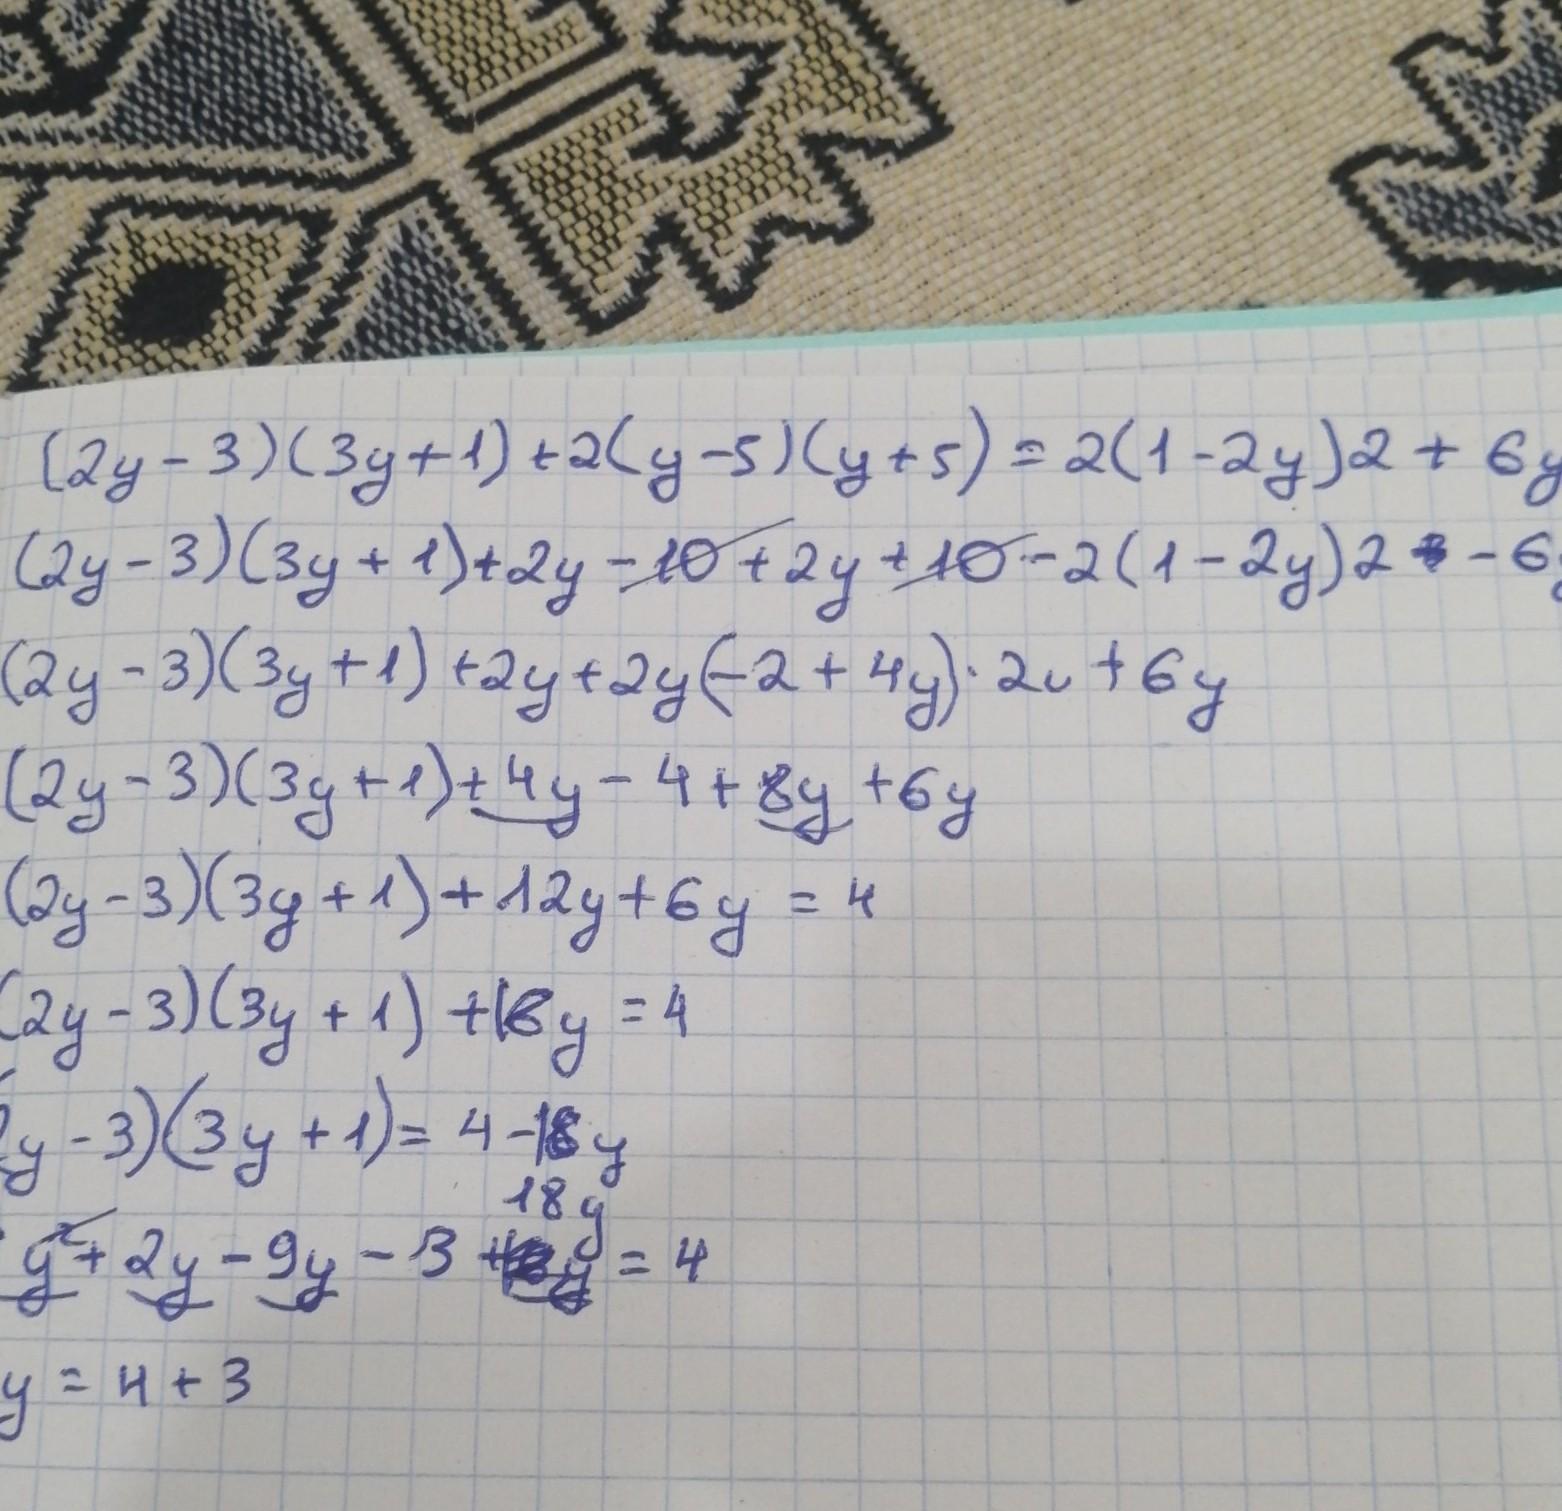 (2y-3)(3y+1)+2(y-5)(y+5)=2(1-2y)2+6y
(2y-3)(3y+1)+2y-10+2y+10-2(1-2y)2-6y
(2y-3)(3y+1)+2y+2y(-2+4y)·2+6y
(2y-3)(3y+1)+4y-4+8y+6y
(2y-3)(3y+1)+12y+6y=4
(2y-3)(3y+1)+18y=4
y-3)(3y+1)=4-18y
18y
y²+2y-9y-3+ =4
y=4+3